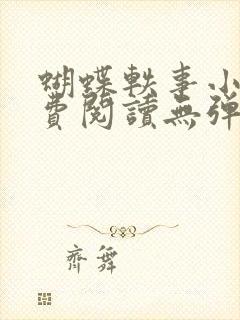 蝴蝶軼事小
費閱讀無彈
齊舞